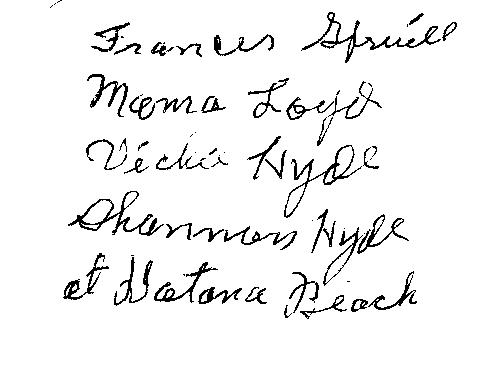 Frances Spruill
Mama Loyd
Vickie Hyde
Shannon Hyde
at Beach